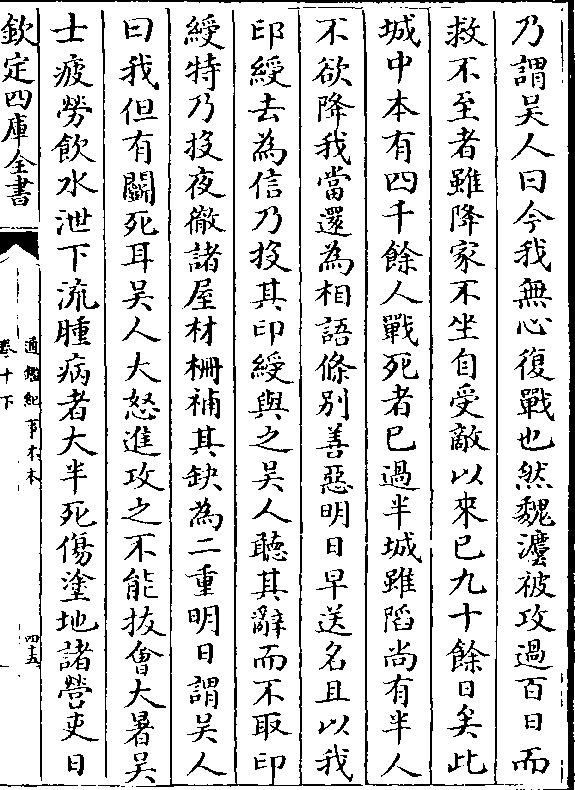 乃謂吴人曰今我無心復戰也然魏灋被攻過百日而
救不至者雖降家不坐自受敵以來已九十餘日矣此
城中本有四千餘人戰死者已過半城雖䧟尚有半人
不欲降我當還為相語條别善惡明日早送名且以我
印綬去為信乃投其印綬與之吴人聽其辭而不取印
綬特乃投夜徹諸屋材柵補其缺為二重明日謂吴人
曰我但有鬬死耳吴人大怒進攻之不能拔會大暑吴
士疲勞飲水泄下流腫病者大半死傷塗地諸營吏日
欽定四庫全書
通鑑紀事本末
卷十下
四五